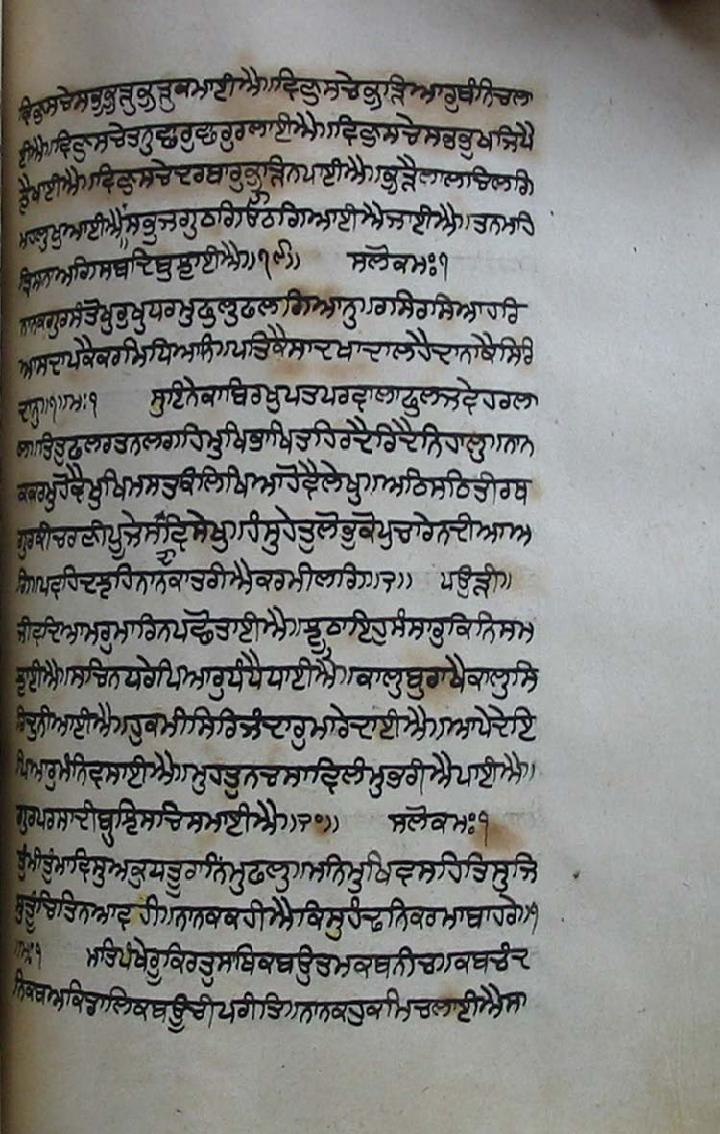 ਵਿਣੁਸਚੇਸਭੁਕੂੜੁਕੂੜੁਕਮਾਈਐ॥ਵਿਣੁਸਚੇਕੂੜਿਆਰੁਬੰਨਿਚਲਾ
ਈਐ॥ਵਿਣੁਸਚੇਤਨੁਛਾਰੁਛਾਰੁਰਲਾਈਐ॥ਵਿਣੁਸਚੇਸਭਭੁਖਜਿਪੈ
ਝੈਖਾਈਐ॥ਵਿਣੁਸਚੇਦਰਬਾਰੁਕੂੜਿਨਪਾਈਐ॥ਕੂੜੈਲਾਲਚਿਲਗਿ
ਮਹਲੁਖੁਆਈਐ॥ਸਭੁਜਗੁਠਗਿਓਠਗਿਆਈਐਜਾਈਐ॥ਤਨਮਹਿ
ਤ੍ਰਿਸਨਾਅਗਿਸਬਦਿਬੁਝਾਈਐ॥੧੯॥ ਸਲੋਕਮਃ੧
ਨਾਨਕਗੁਰੁਸੰਤੋਖੁਰੁਖੁਧਰਮੁਫੁਲੁਫਲਗਿਆਨੁ॥ਰਸਿਰਸਿਆਹਰਿ
ਆਸਦਾਪਕੈਕਰਮਿਧਿਆਨਿ॥ਪਤਿਕੈਸਾਦਖਾਦਾਲਹੈਦਾਨਾਕੈਸਿਰਿ
ਦਾਨੁ॥੧॥ਮਃ੧ ਸੁਇਨੇਕਾਬਿਰਖੁਪਤਪਰਵਾਲਾਫੁਲਜਵੇਹਰਲਾ
ਲ॥ਤਿਤੁਫਲਰਤਨਲਗਹਿਮੁਖਿਭਾਖਿਤਹਿਰਦੈਰਿਦੈਨਿਹਾਲੁ॥ਨਾਨ
ਕਕਰਮੁਹੋਵੈਮੁਖਿਮਸਤਕਿਲਿਖਿਆਹੋਵੈਲੇਖੁ॥ਅਠਿਸਠਿਤੀਰਥ
ਗੁਰਕੀਚਰਣੀਪੂਜੈਸਦਾਵਿਸੇਖੁ॥ਹੰਸੁਹੇਤੁਲੋਭੁਕੋਪੁਚਾਰੇਨਦੀਆਅ
ਗਿ॥ਪਵਹਿਦਝਹਿਨਾਨਕਾਤਰੀਐਕਰਮੀਲਗਿ॥੨॥ ਪਉੜੀ॥
ਜੀਵਦਿਆਮਰੁਮਾਰਿਨਪਛੋਤਾਈਐ॥ਝੂਠਾਇਹੁਸੰਸਾਰੁਕਿਨਿਸਮ
ਝਾਈਐ॥ਸਚਿਨਧਰੇਪਿਆਰੁਧੰਧੈਧਾਈਐ॥ਕਾਲੁਬੁਰਾਖੈਕਾਲੁਸਿ
ਰਿਦੁਨੀਆਈਐ॥ਹੁਕਮੀਸਿਰਿਜੰਦਾਰੁਮਾਰੇਦਾਈਐ॥ਆਪੇਦੇਇ
ਪਿਆਰੁਮੰਨਿਵਸਾਈਐ॥ਮੁਹਤੁਨਚਸਾਵਿਲੰਮੁਭਰੀਐਪਾਈਐ॥
ਗੁਰਪਰਸਾਦੀਬੁਝਿਸਚਿਸਮਾਈਐ॥੨੦॥ ਸਲੋਕਮਃ੧
ਤੁੰਮੀਤੁੰਮਾਵਿਸੁਅਕੁਧਤੂਰਾਨਿਮੁਫਲੁ॥ਮਨਿਮੁਖਿਵਸਹਿਤਿਸੁਜਿ
ਸੁਤੂੰਚਿਤਿਨਆਵਹੀ॥ਨਾਨਕਕਹੀਐਕਿਸੁਹੰਢਨਿਕਰਮਾਬਾਹਰੇ॥੧
॥ਮਃ੧ ਮਤਿਪੰਖੇਰੂਕਿਰਤੁਸਾਥਿਕਬਉਤਮਕਬਨੀਚ॥ਕਬਚੰਦ
ਨਿਕਬਅਕਿਡਾਲਿਕਬਉਚੀਪਰੀਤਿ॥ਨਾਨਕਹੁਕਮਿਚਲਾਈਐਸਾ